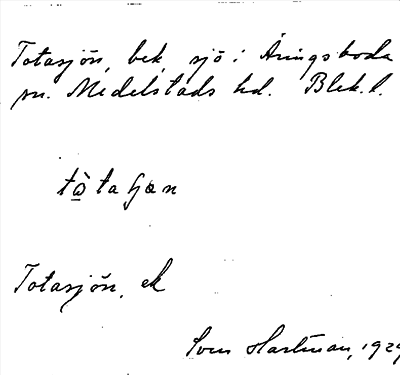 Totasjön, bek, sjö i Åringsboda
sn. Medelstads hd. Blek. l.
Totasjön, ek
Sven Hartman, 192